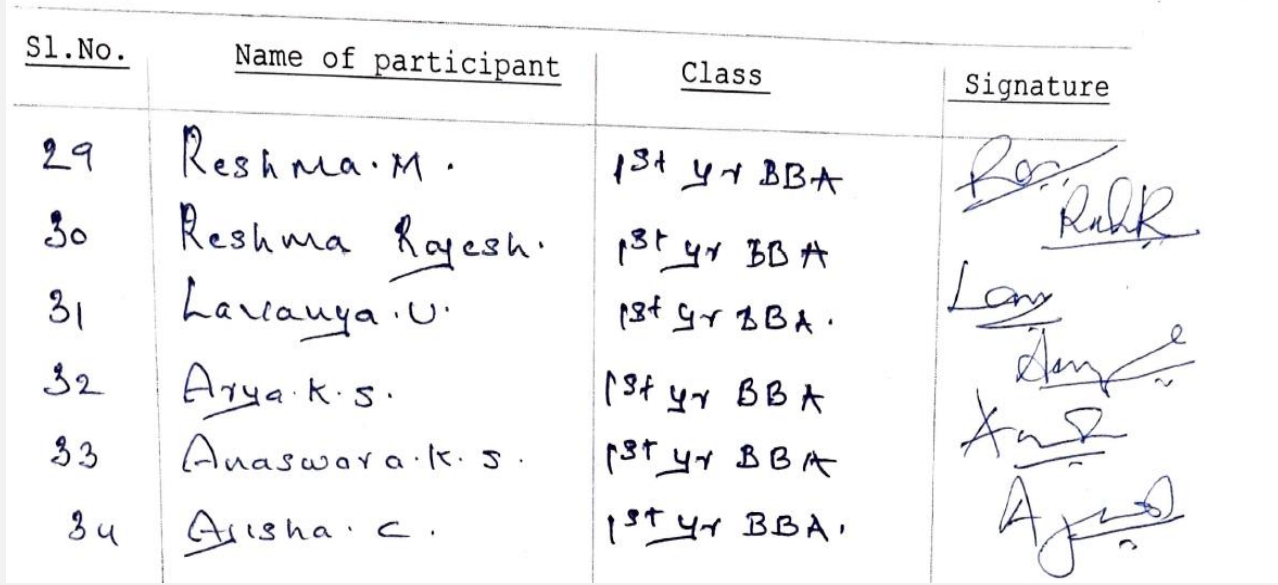 Sl.No. Name of participant Class Signature
29 Reshma.M. 1st yr BBA
30 Reshma Rajesh. 1st yr BBA
31 Lavanya.U. 1st yr BBA.
32 Arya.K.S. 1st yr BBA
33 Anaswara.K.S. 1st yr BBA
34 C. 1st yr BBA.